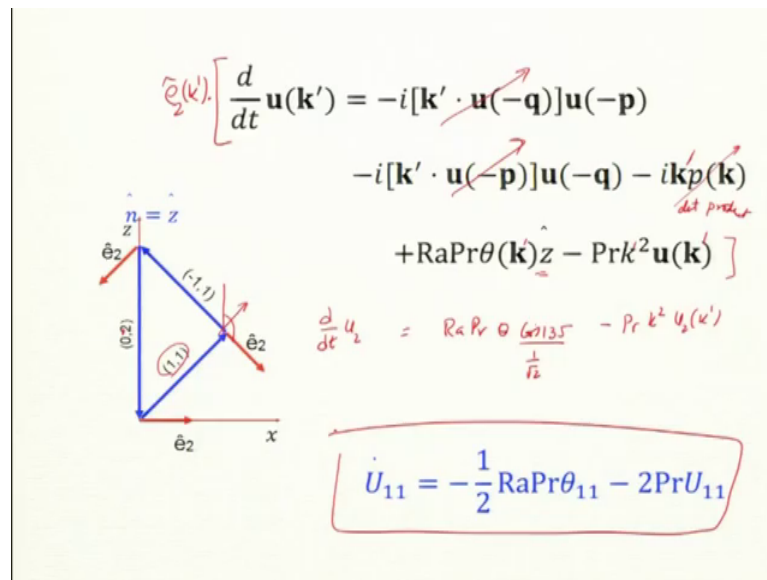 ẽ₂(k′)·[ d/dt u(k′) = −i[k′ · u(−q)]u(−p)
−i[k′ · u(−p)]u(−q) − ik′p(k)
dot product
+RaPrθ(k′)ẑ − Prk′²u(k′) ]
n̂ = ẑ
z
ê2
(-1,1)
(0,2)
(1,1)
ê2
ê2
x
d/dt u₂ = Ra Pr θ Cos135 − Pr k² u₂(k′)
1/√2
U̇₁₁ = −1/2 RaPrθ₁₁ − 2PrU₁₁